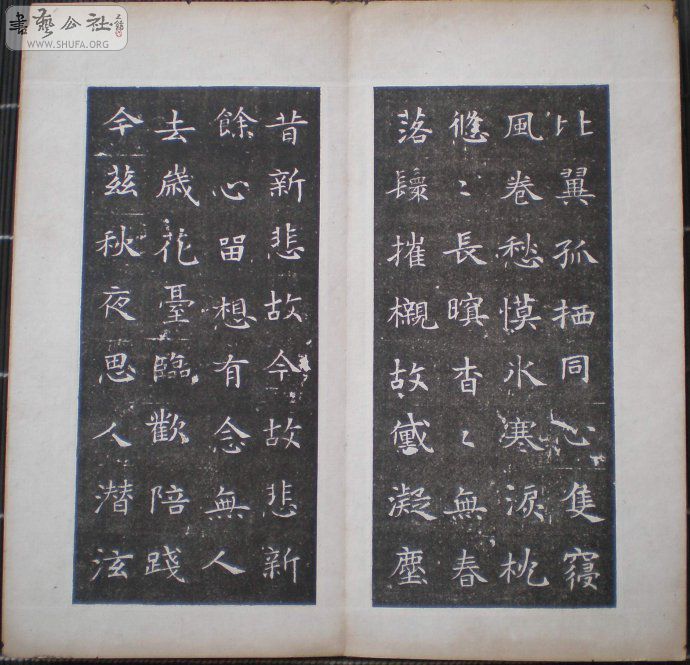 比翼孤栖同心隻寢
風卷愁慔冰寒淚枕
悠〻長暝杳〻無春
落鬟摧櫬故傔凝塵
昔新悲故今故悲新
餘心留想有念無人
去歲花臺臨歡陪踐
今茲秋夜思人潛泫
書藝公社
WWW.SHUFA.ORG